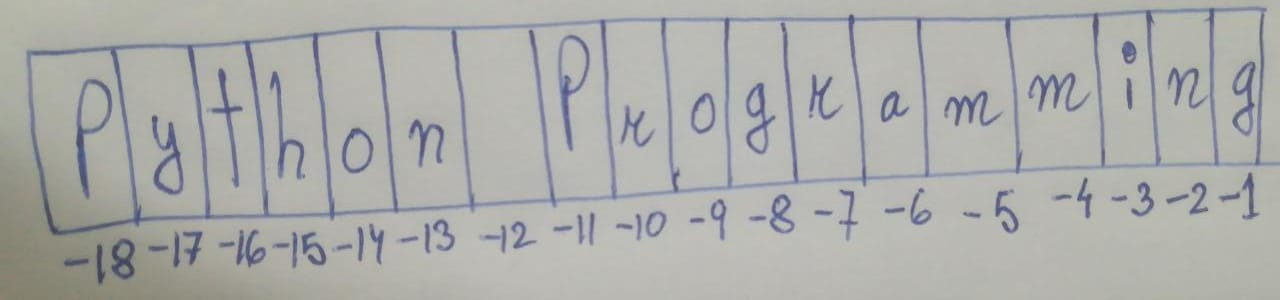 Python Programming
-18 -17 -16 -15 -14 -13 -12 -11 -10 -9 -8 -7 -6 -5 -4 -3 -2 -1